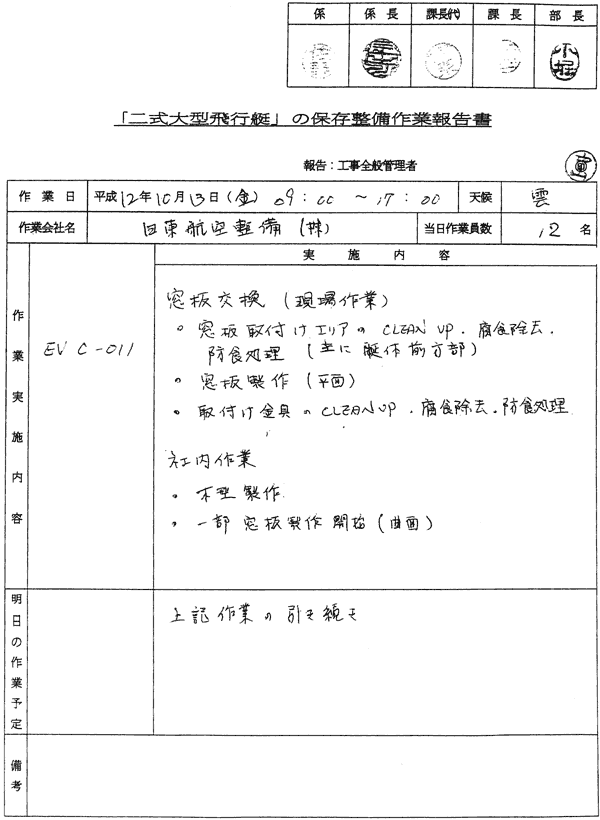 係 係長 課長(代) 課長 部長
小堀
「二式大型飛行艇」の保存整備作業報告書
報告:工事全般管理者
作業日 平成12年10月13日(金) 09:00 ～17:00 天候 雲
作業会社名 日東航空整備(株) 当日作業員数 12名
実施内容
作業実施内容
EV C-011
窓板交換 (現場作業)
。窓板取付けエリアの CLEAN UP . 腐食除去 .
防食処理 (主に艇体前方部)
。窓板製作 (平面)
。取付け金具の CLEAN UP . 腐食除去 . 防食処理
社内作業
。木型製作
。一部窓板製作開始 (曲面)
明日の作業予定
上記作業の引き続き
備考